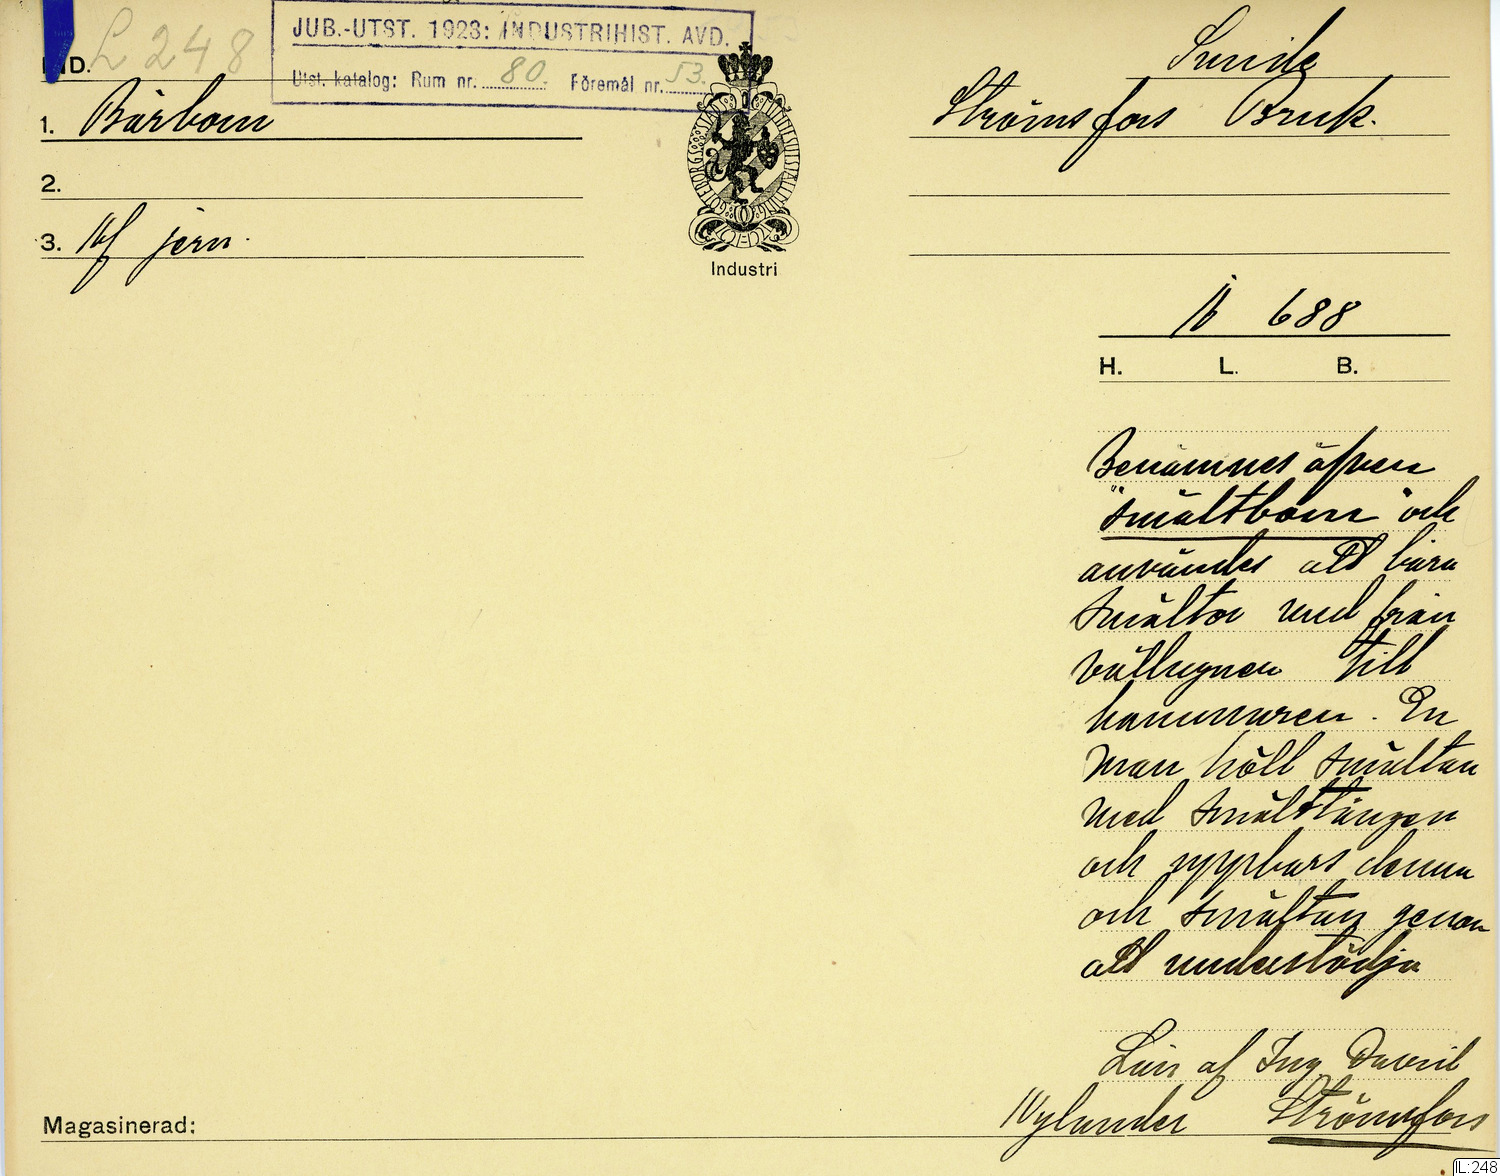 IND. L 248
JUB.-UTST. 1923: INDUSTRIHIST. AVD.
Utst. katalog: Rum nr. 80. Föremål nr. 53.
1. Bärbom
2.
3. Af jern.
GÖTEBORGS STADS MINNESUTSTÄLLNING
Industri
Strömsfors Bruk.
N 688
H. L. B.
Benämnes äfven
"smältbom" och
användes att bära
smältor med från
vällugnen till
hammaren. En
man höll smältan
med smälttången
och uppbars denna
och smältan genom
att understödja
Lån af Ing David
Nylander Strömsfors
Magasinerad:
IL:248